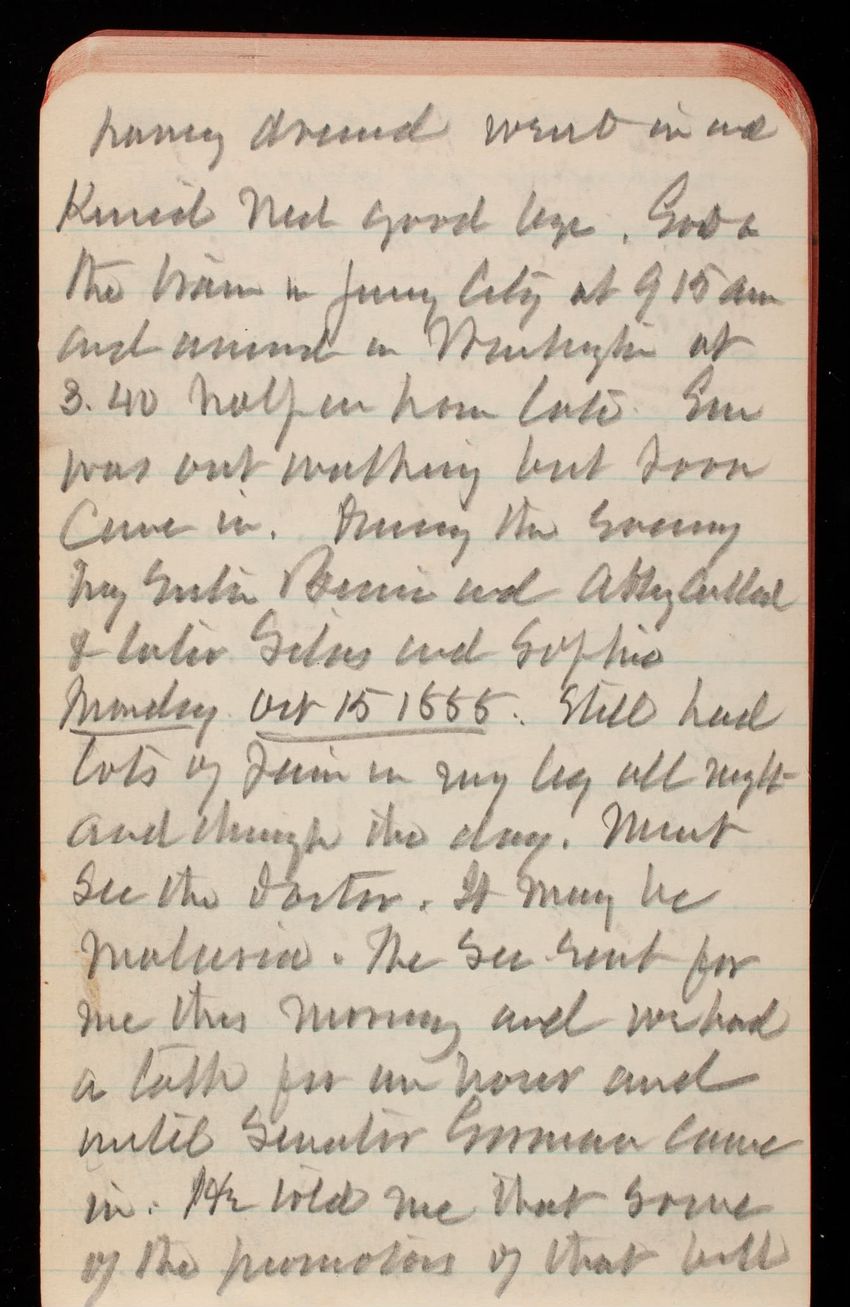 having dressed went in and
Kissed Ned good bye. Got a
the train in Jersey City at 9 15 am
and arrived in Washington at
3.40 half an hour late. Em
was out walking but soon
Came in. During the Evening
and Abby called
& later Gibbs and Sophie
Monday Oct 15 1888. Still had
lots of pain in my leg all night
and through the day. Must
See the doctor. It may be
Malaria. The Sec sent for
me this morning and we had
a talk for an hour and
until Senator Gorman came
in. He told me that some
of the promotors of that bill